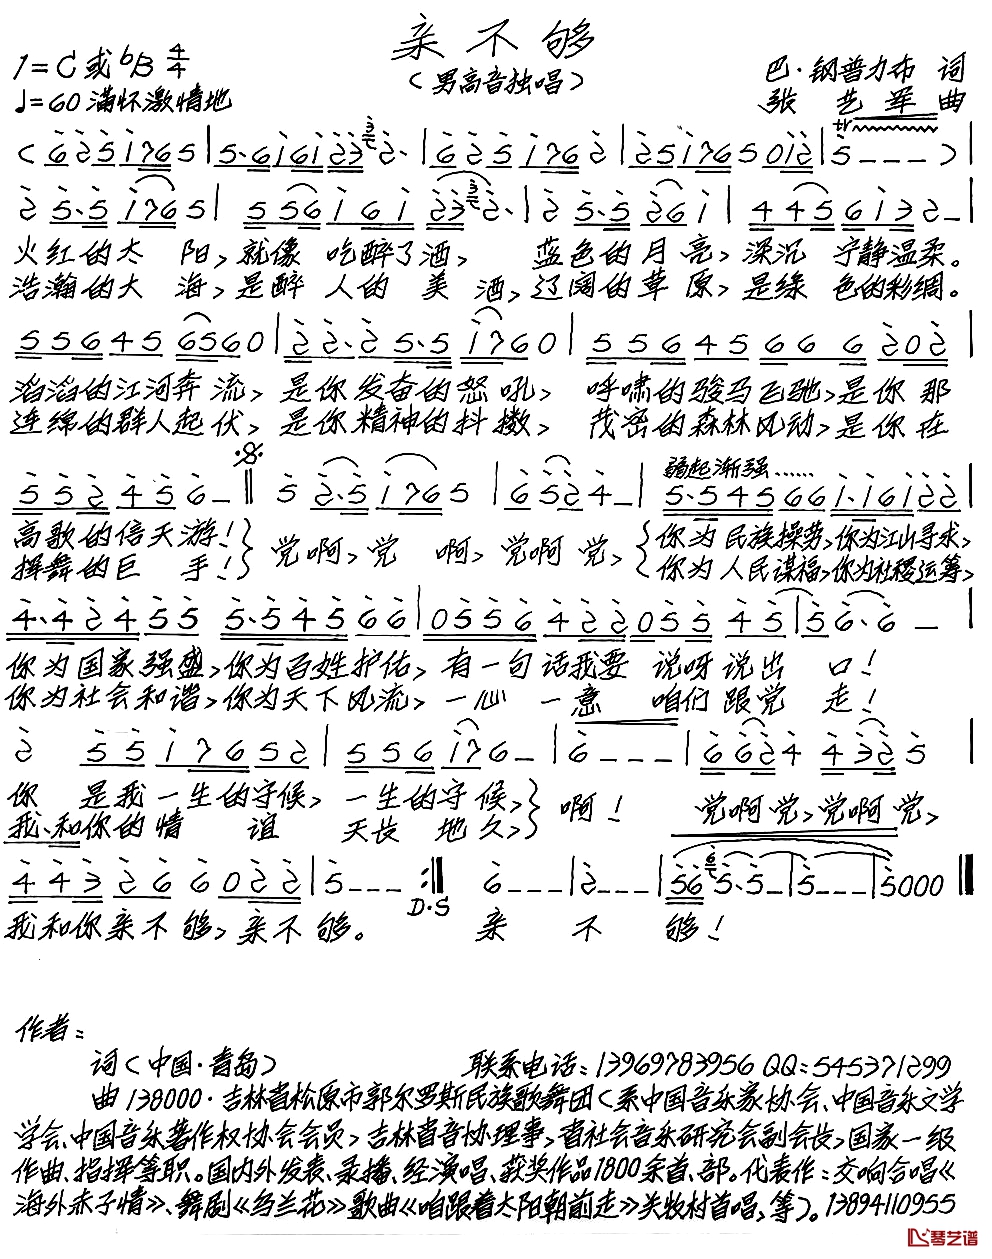 亲不够
(男高音独唱)
1=C或bB 4/4
♩=60 满怀激情地
巴·钢普力布 词
张艺军 曲
火红的太 阳,就像 吃醉了酒, 蓝色的月亮,深沉 宁静温柔。
浩瀚的大 海,是醉 人的 美 酒,辽阔的草 原,是绿 色的彩绸。
滔滔的江河奔 流,是你发奋的怒吼, 呼啸的骏马飞驰,是你 那
连绵的群人起 伏,是你精神的抖擞, 茂密的森林风动,是你 在
弱起渐强……
高歌的信天游!} 党啊,党 啊,党啊党,{你为民族操劳,你为江山寻求,
挥舞的巨 手!} {你为人民谋福,你为社稷运筹,
你为国家强盛,你为百姓护佑,有一句话我要 说呀说出 口!
你为社会和谐,你为天下风流,一心 一意 咱们跟党 走!
你 是我一生的守候,一生的守 候,} 啊! 党啊党,党啊党,
我和你的情 谊 天长 地久,}
D·S
我和你亲不够,亲不够。 亲 不 够!
作者:
词(中国·青岛) 联系电话:13969783956 QQ:545371299
曲138000·吉林省松原市郭尔罗斯民族歌舞团(系中国音乐家协会、中国音乐文学
学会、中国音乐著作权协会会员,吉林省音协理事,省社会音乐研究会副会长,国家一级
作曲、指挥等职。国内外发表、录播、经演唱、获奖作品1800余首、部。代表作:交响合唱《
海外赤子情》、舞剧《乌兰花》歌曲《咱跟着太阳朝前走》关牧村首唱,等)。13894110955
琴艺谱